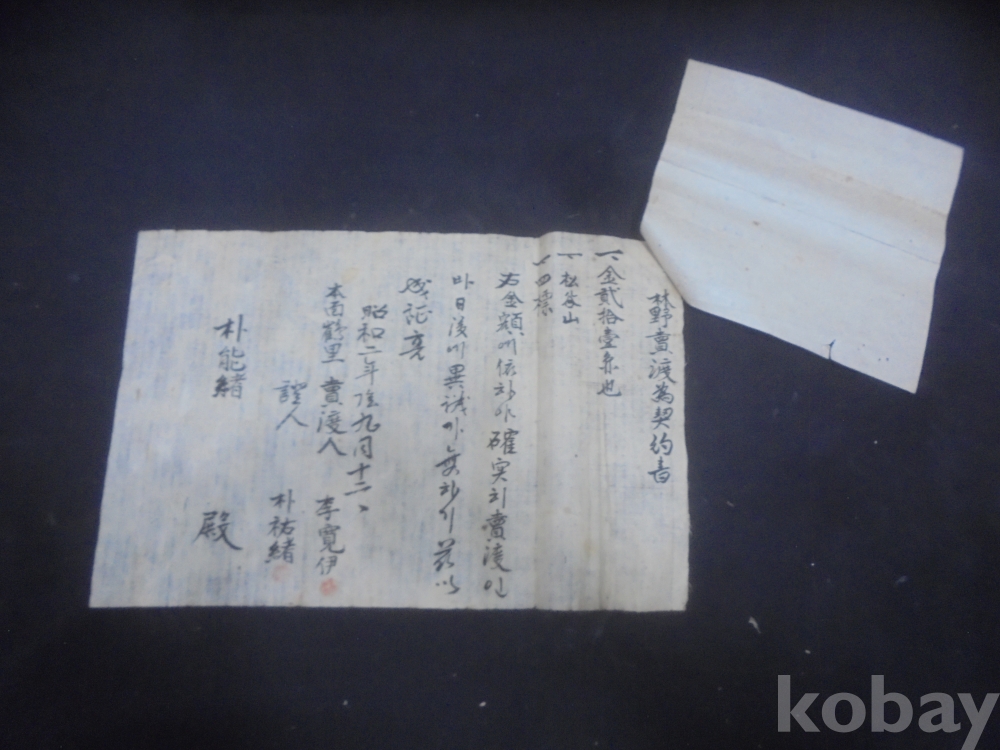 林野賣渡為契約書
一、金貳拾壹圓也
一、松生山
一、四標
右金額에 依하야 確実히 賣渡인
바 日後에 異議가 無하기 玆以
成証事
昭和二年陰九月十二日
本面鶴里 賣渡人 李寬伊
證人 朴祐緖
朴能緖 殿
kobay